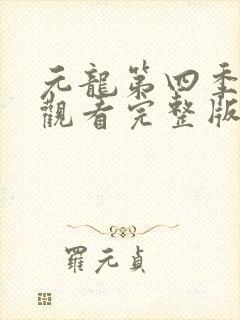 元龍第四季
觀看完整版
羅元貞